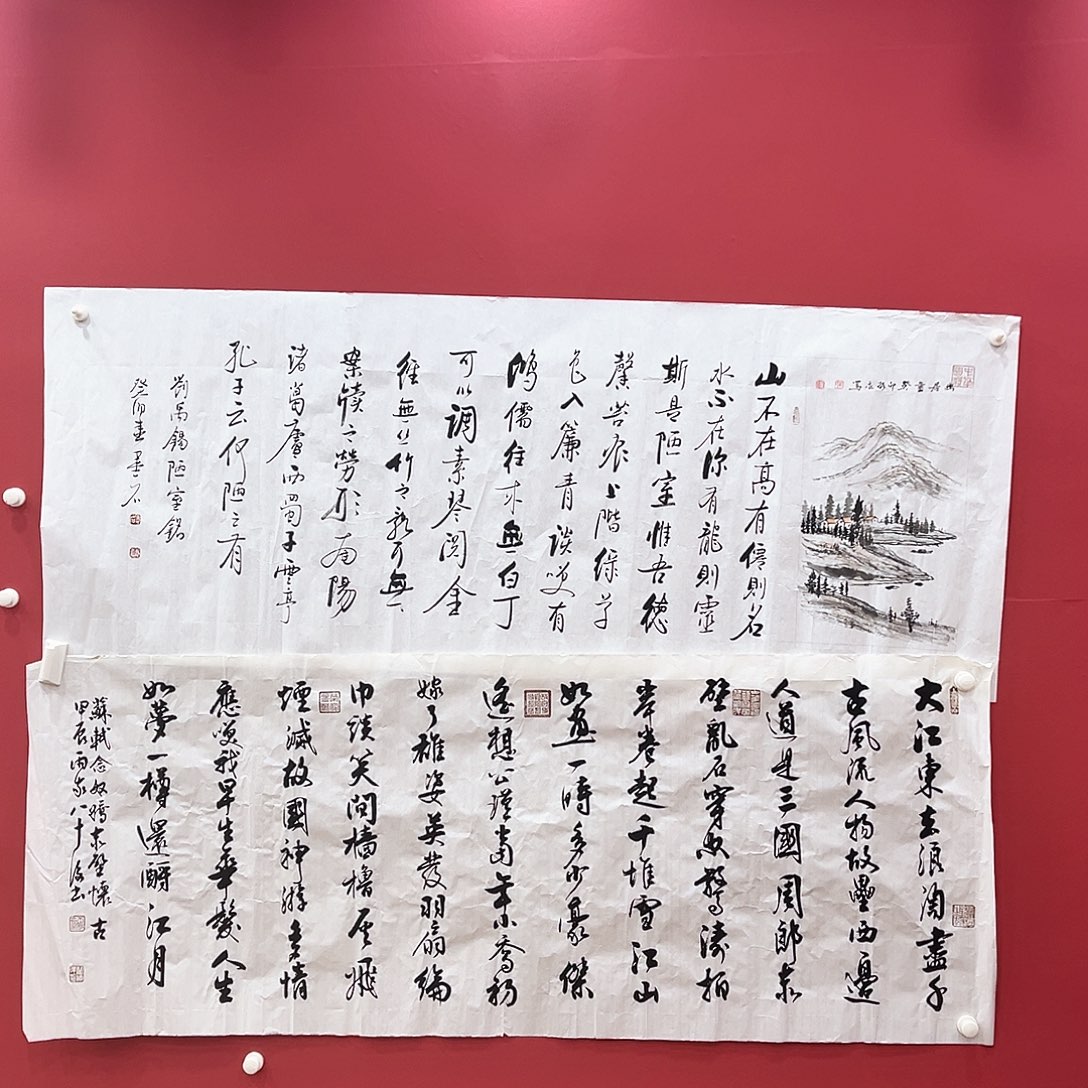 山不在高有僊則名
水不在深有龍則靈
斯是陋室惟吾德
馨苔痕上階綠草
色入簾青談笑有
鴻儒往來無白丁
可以調素琴閱金
經無絲竹之亂耳無
案牘之勞形南陽
諸葛廬西蜀子雲亭
孔子云何陋之有
劉禹錫陋室銘
癸卯春墨石
大江東去浪淘盡千
古風流人物故壘西邊
人道是三國周郎赤
壁亂石穿空驚濤拍
岸卷起千堆雪江山
如畫一時多少豪傑
遙想公瑾當年小喬初
嫁了雄姿英發羽扇綸
巾談笑間檣櫓灰飛
煙滅故國神游多情
應笑我早生華髮人生
如夢一樽還酹江月
蘇軾念奴嬌赤壁懷古
甲辰
八十
書